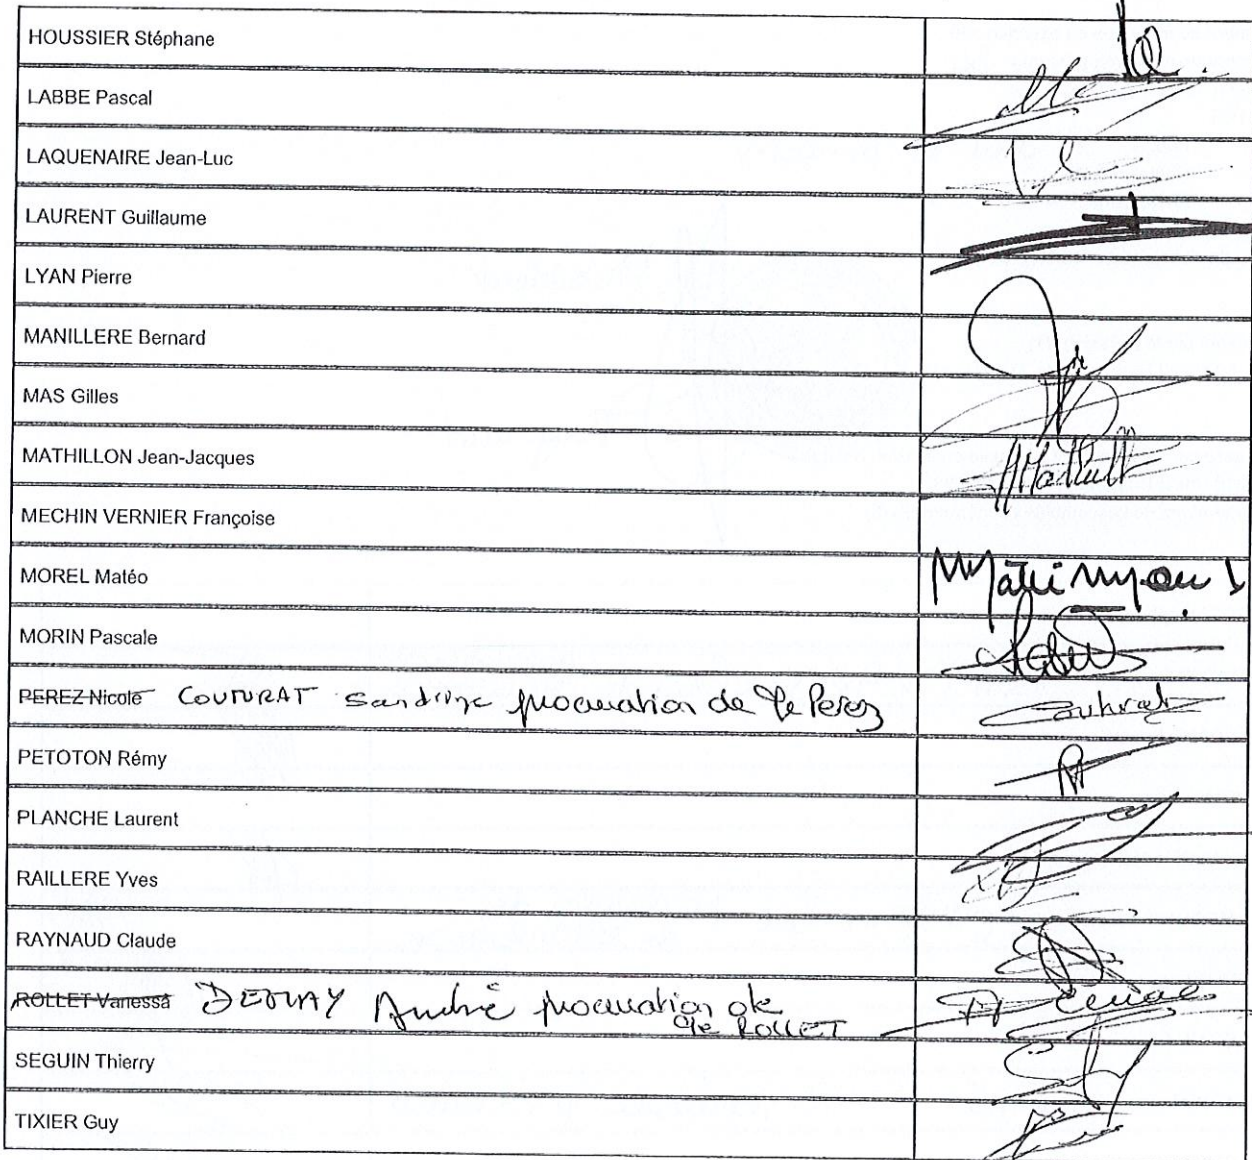 HOUSSIER Stéphane
LABBE Pascal
LAQUENAIRE Jean-Luc
LAURENT Guillaume
LYAN Pierre
MANILLERE Bernard
MAS Gilles
MATHILLON Jean-Jacques
MECHIN VERNIER Françoise
MOREL Matéo
MORIN Pascale
PEREZ Nicole COUTURAT Sandrine procuration de Perez Couturat
PETOTON Rémy
PLANCHE Laurent
RAILLERE Yves
RAYNAUD Claude
ROLLET Vanessa André procuration de
ROLLET
SEGUIN Thierry
TIXIER Guy